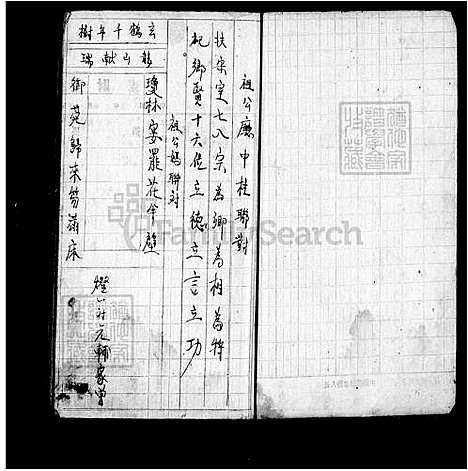 祖公廳中柱聯對
扶宋室七八宗為卿為相為將
祀鄉賢十六位立德立言立功
祖公媽聯對
瓊林宴罷花伞壁
御苑歸來笏滿床
玄鶴千年樹
龍山献瑞
元輔家曾
FamilySearch